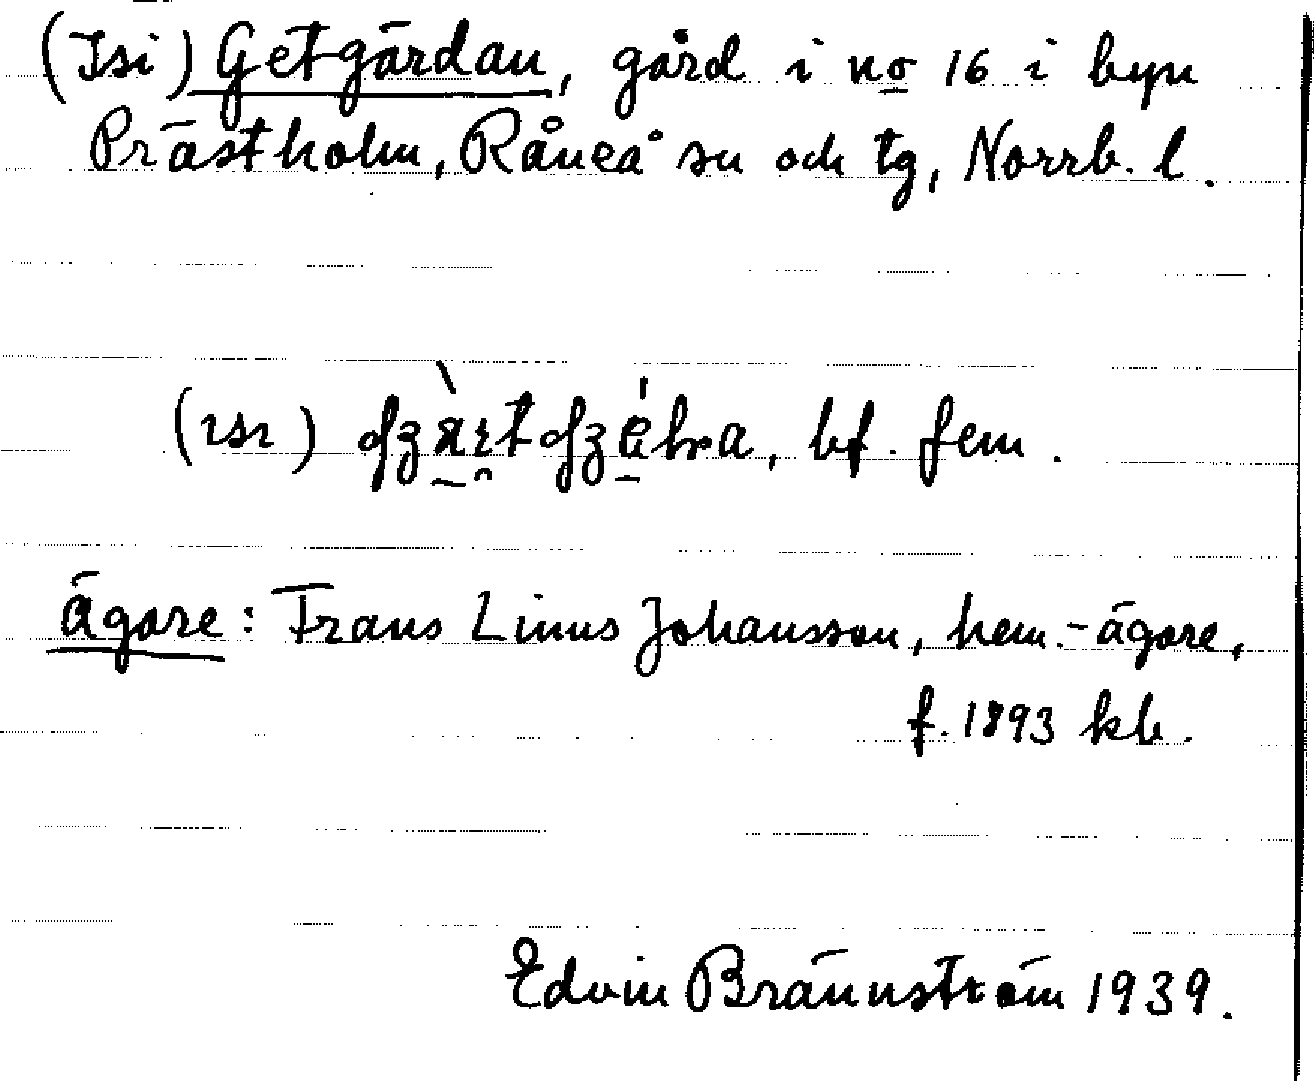 (Isi) Getgärdan, gård i no 16 i byn
Prästholm, Råneå sn och tg, Norrb. l.
bf. fem.
ägare: Frans Linus Johansson, hem.-ägare,
f. 1893 kb.
Edvin Brännström 1939.